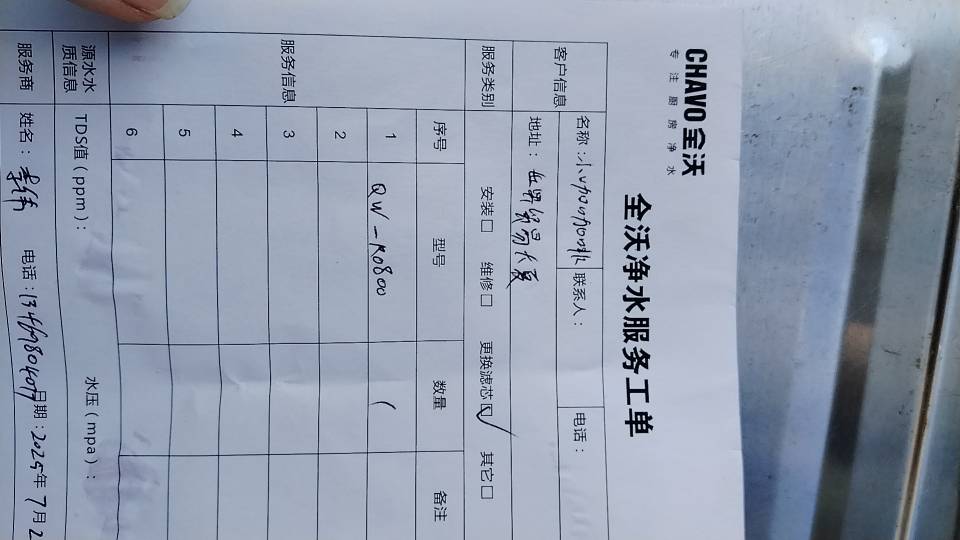 CHAVO 全沃
专注厨房净水
全沃净水服务工单
客户信息 名称: 联系人: 电话:
地址: 世界贸易大厦
服务类别 安装□ 维修□ 更换滤芯☑ 其它□
服务信息 序号 型号 数量 备注
1 QW-RO800 1
2
3
4
5
6
源水水质信息 TDS值(ppm): 水压(mpa):
服务商 姓名: 李伟 电话: 日期: 2025年7月2